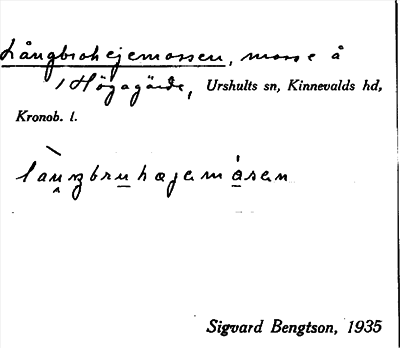 Långbrohejemossen, mosse å
Högagärde, Urshults sn, Kinnevalds hd,
Kronob. l.
Sigvard Bengtson, 1935